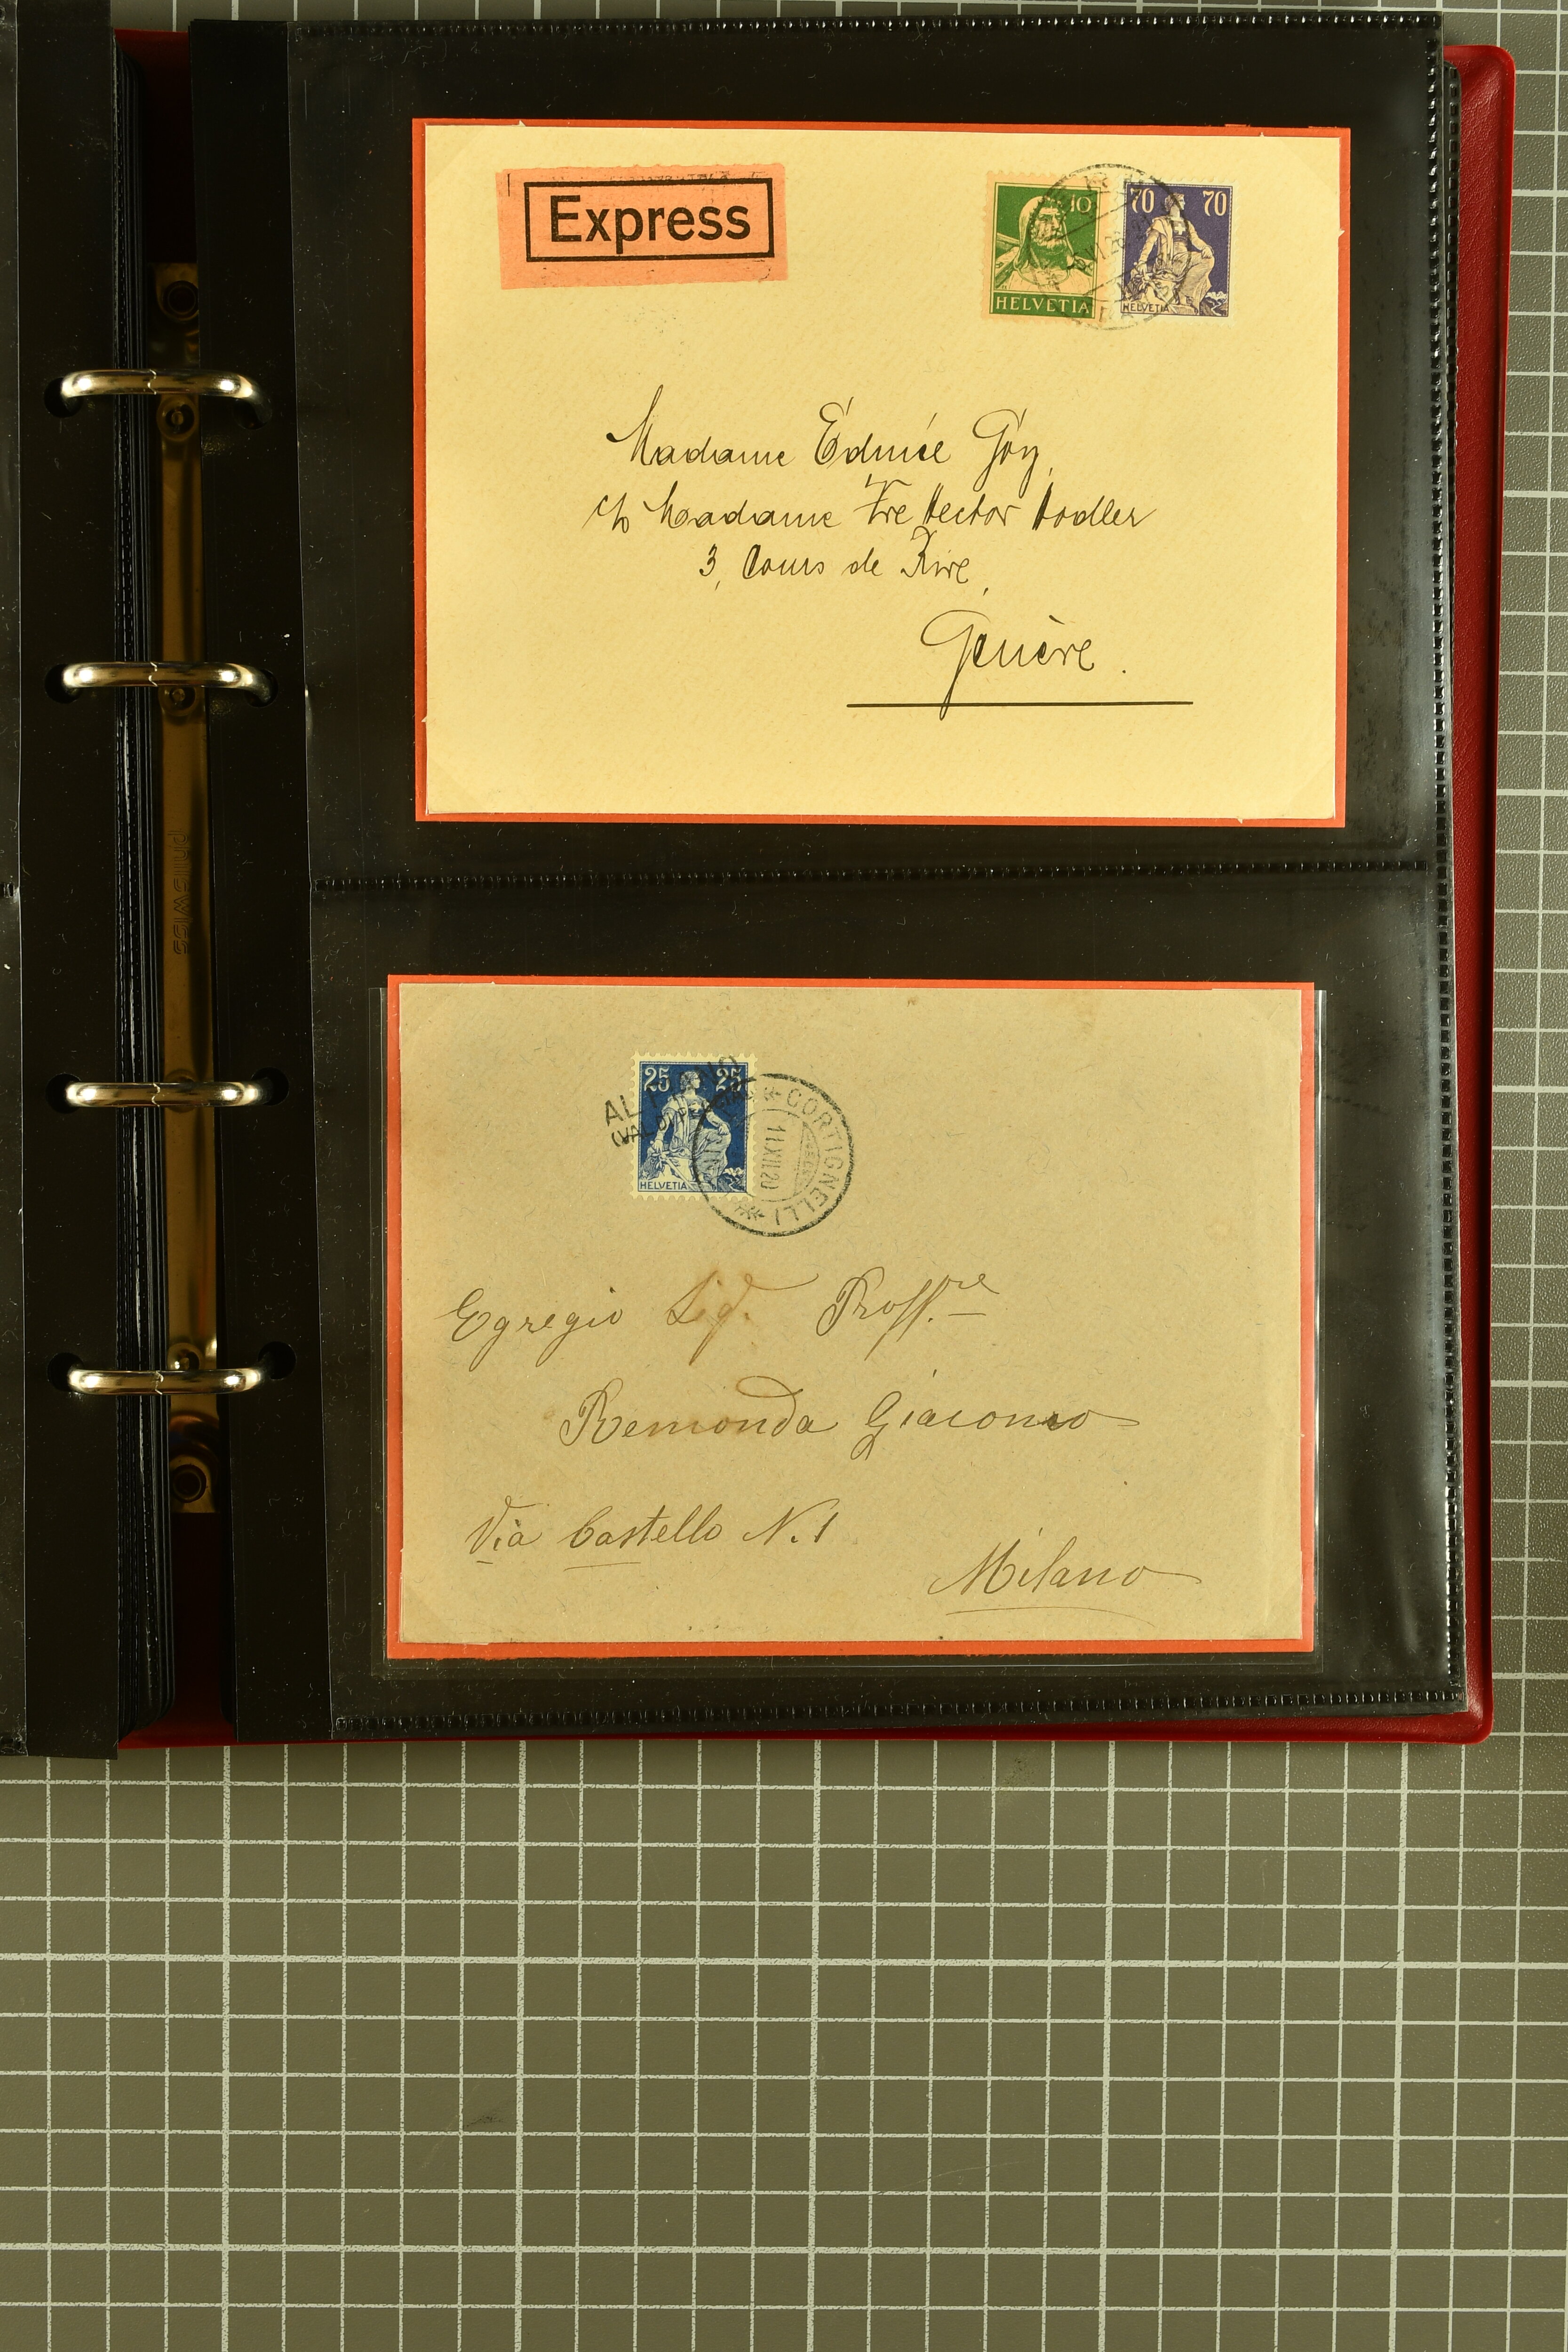 Express
10
HELVETIA
70 70
HELVETIA
Madame Edmée Goy,
c/o Madame Vve Hector Hodler
3, Cours de Rive,
Genève.
25 25
HELVETIA
CORTIGNELLI
11.XII.20
Egregio Sig. Proff.re
Remonda Giacomo
Via Castello N. 1
Milano
PHILSWISS